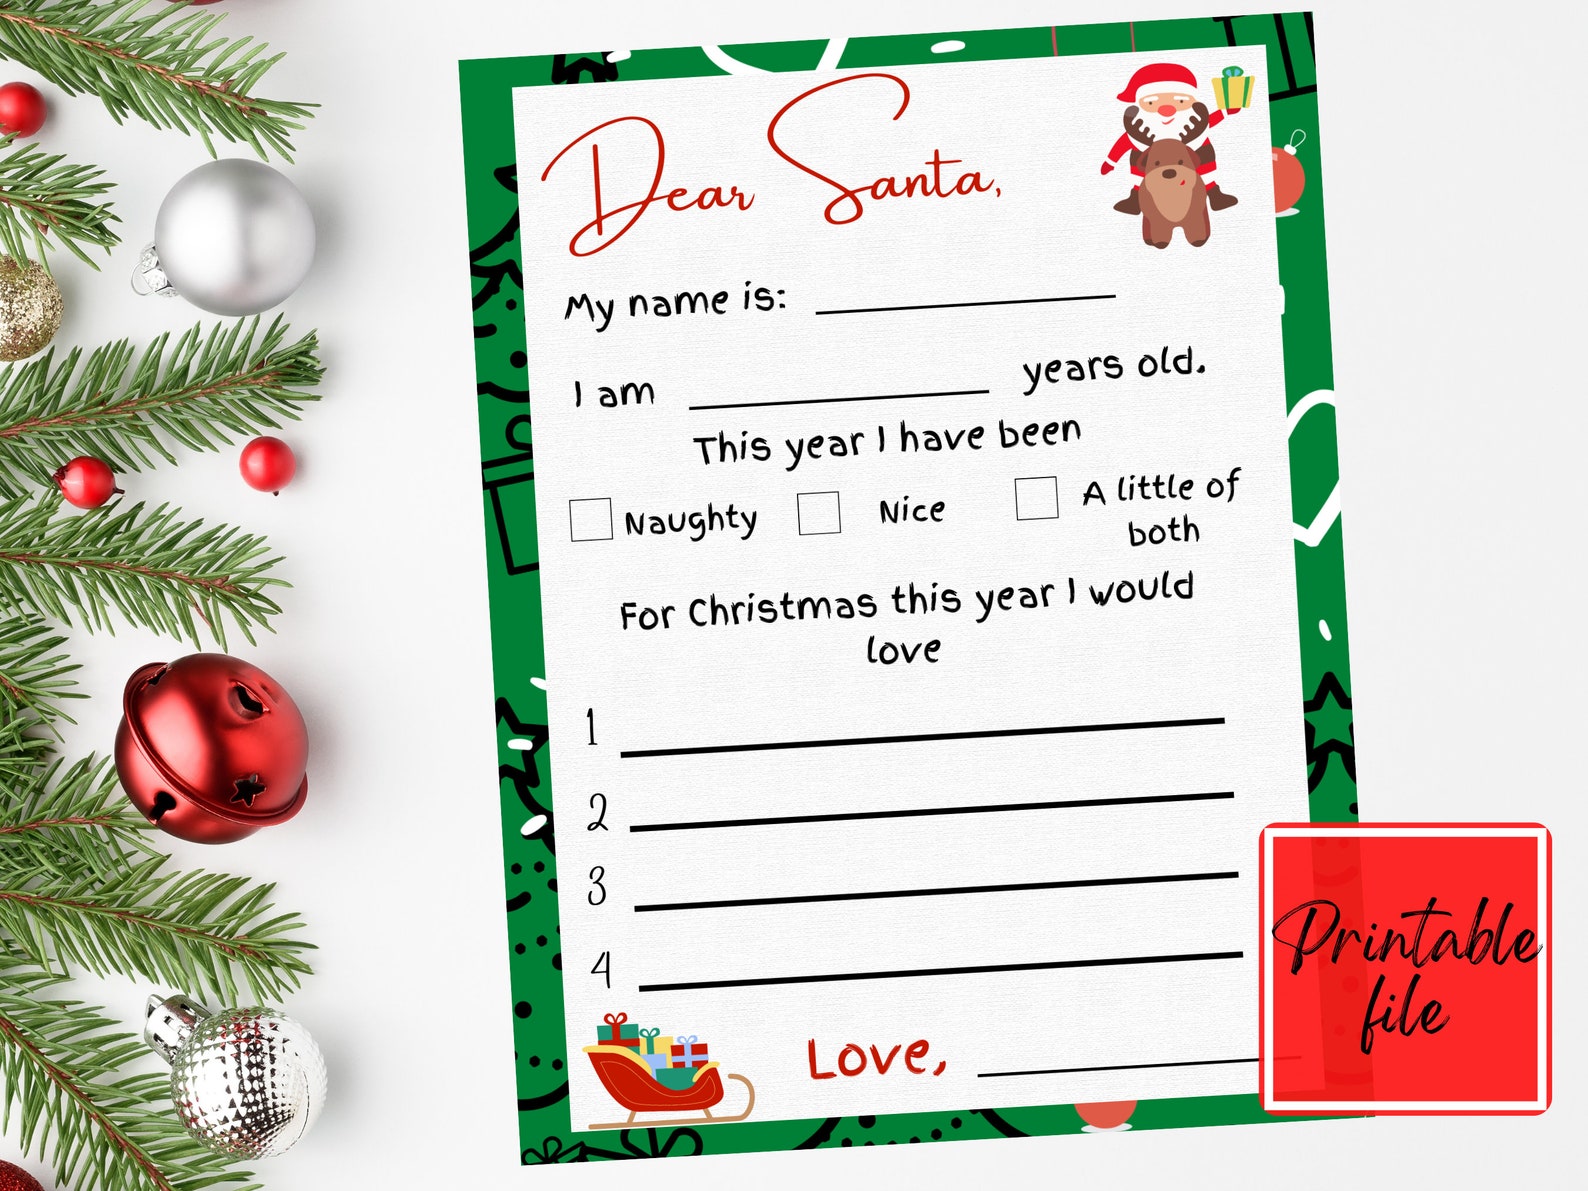 Dear Santa,
My name is:
I am years old.
This year I have been
Naughty Nice A little of
both
For Christmas this year I would
love
1
2
3
4
Love,
Printable
file